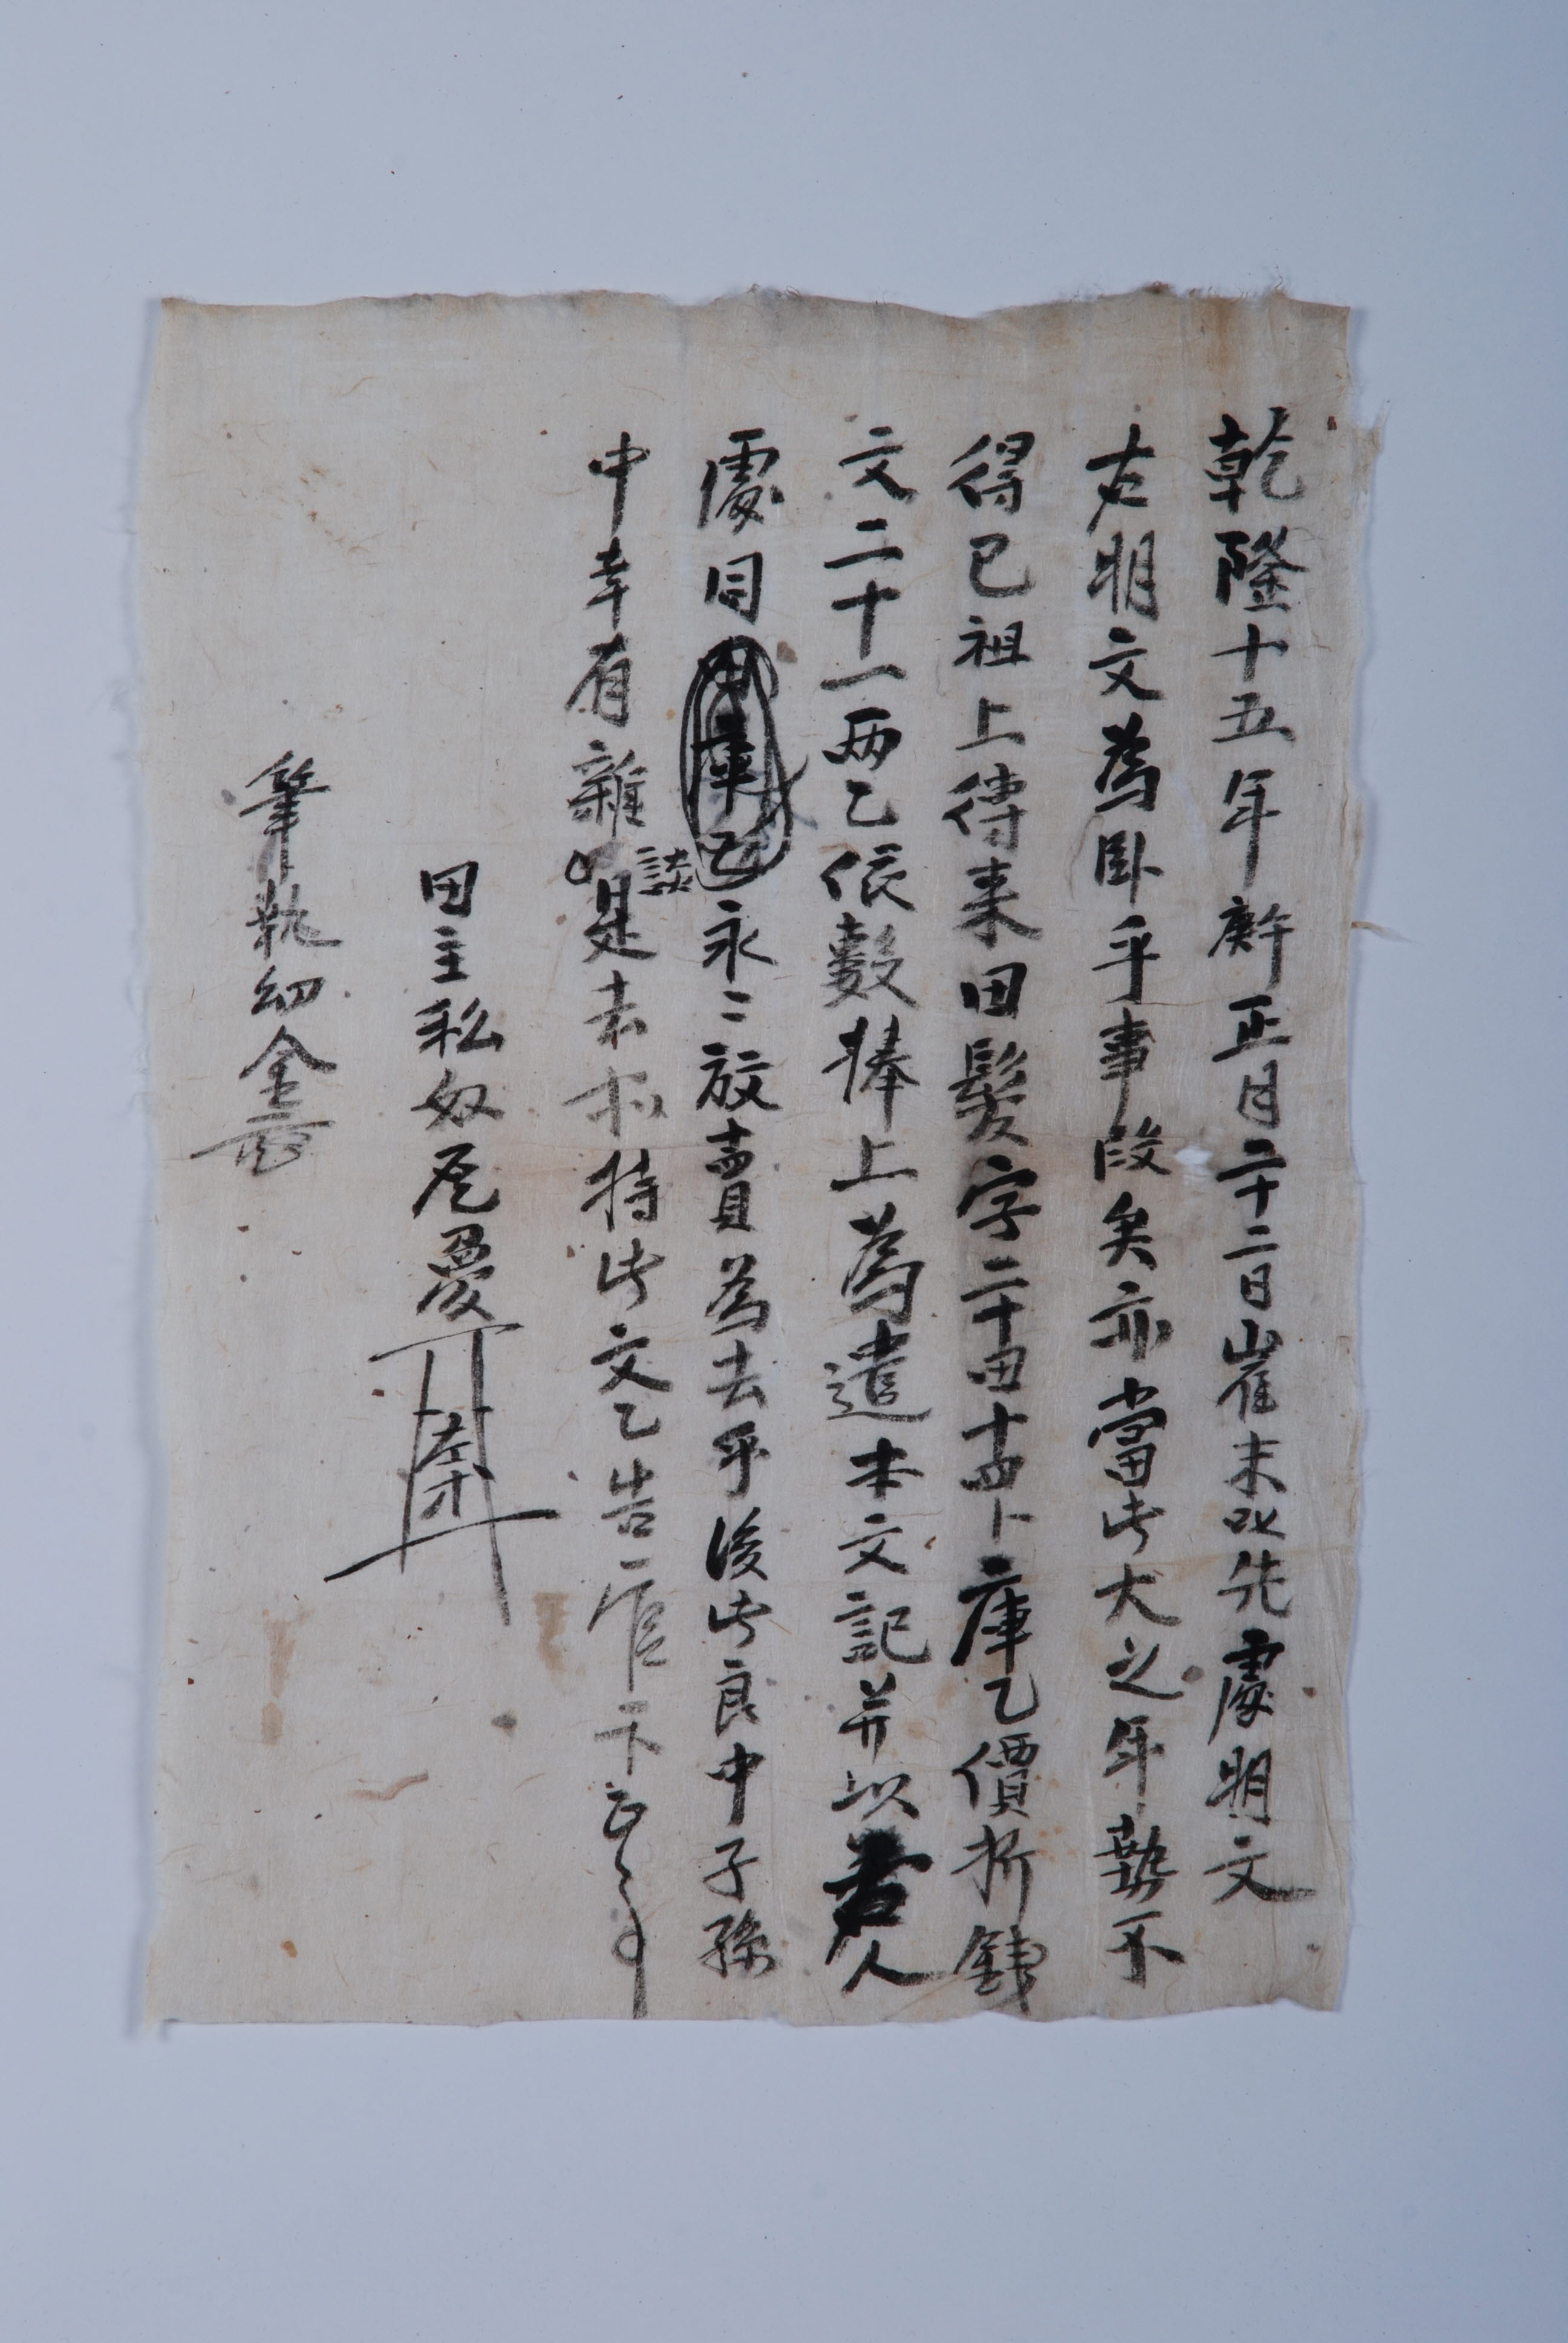 乾隆十五年庚午正月二十二日崔末先處明文
右明文爲卧乎事段矣亦當此大之年勢不
得已祖上傳來田髮字二十田十四卜庫乙價折錢
文二十一兩乙依數捧上爲遣本文記并以人
處同永〻放賣爲去乎後此良中子孫
中幸有雜談是去特此文乙告官卞正
田主私奴愛左寸
筆執幼金